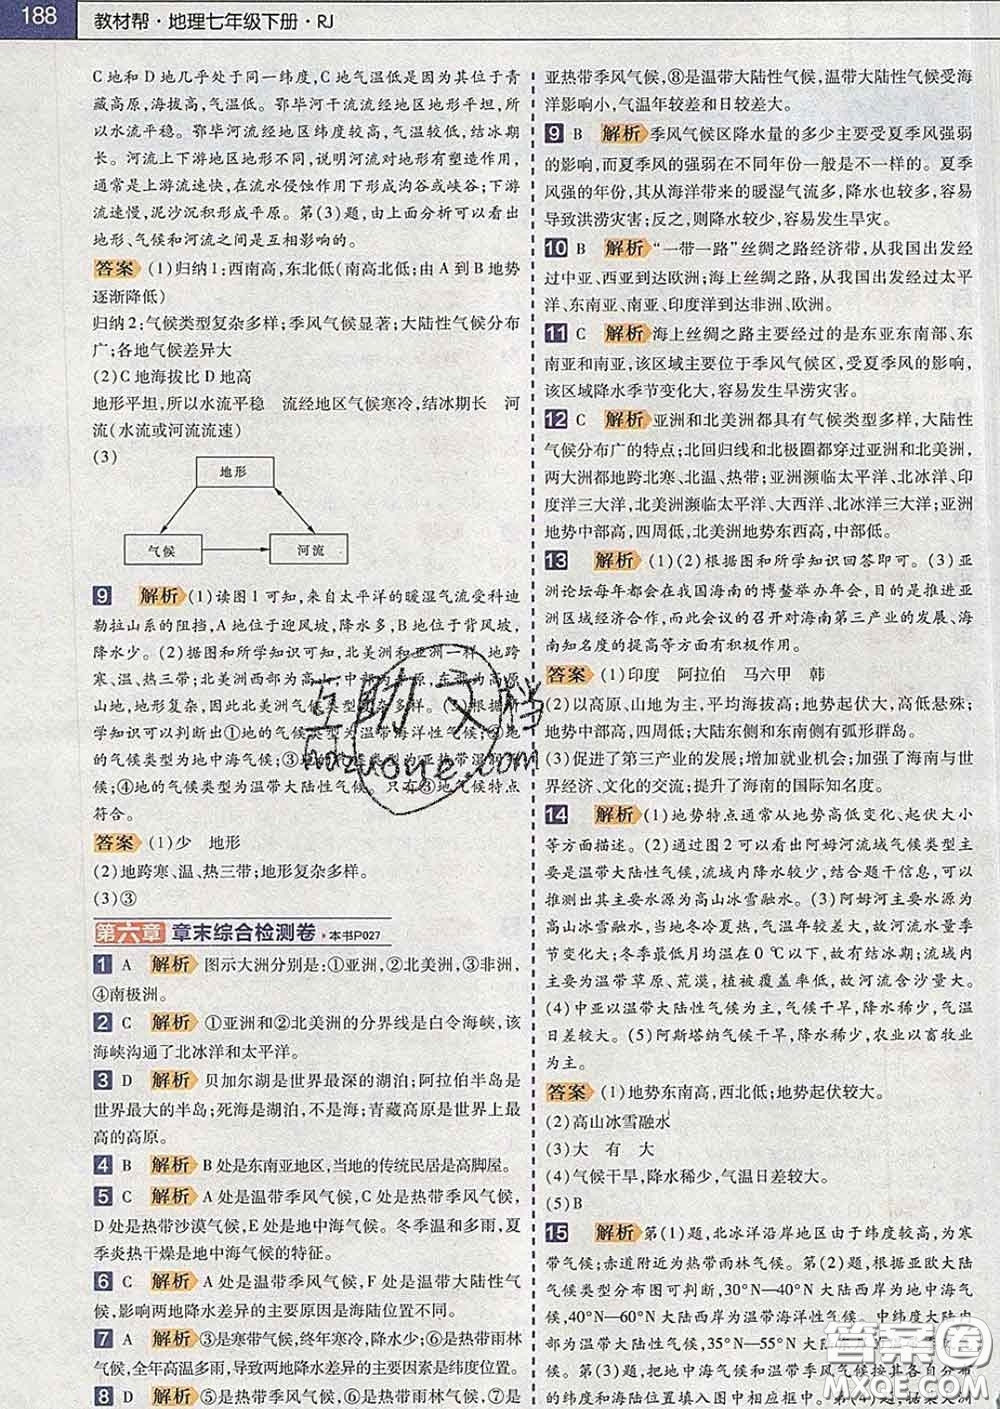 188 教材帮·地理七年级下册·RJ
C地和D地几乎处于同一纬度,C地气温低是因为其位于青
藏高原,海拔高,气温低。鄂毕河干流流经地区地形平坦,所
以水流平稳。鄂毕河流经地区纬度较高,气温较低,结冰期
长。河流上下游地区地形不同,说明河流对地形有塑造作用,
通常是上游流速快,在流水侵蚀作用下形成沟谷或峡谷;下游
流速慢,泥沙沉积形成平原。第(3)题,由上面分析可以看出
地形、气候和河流之间是互相影响的。
答案 (1)归纳1:西南高,东北低(南高北低;由A到B地势
逐渐降低)
归纳2:气候类型复杂多样;季风气候显著;大陆性气候分布
广;各地气候差异大
(2)C地海拔比D地高
地形平坦,所以水流平稳 流经地区气候寒冷,结冰期长 河
流(水流或河流流速)
(3)
地形
气候 河流
9 解析 (1)读图1可知,来自太平洋的暖湿气流受科迪
勒拉山系的阻挡,A地位于迎风坡,降水多,B地位于背风坡,
降水少。(2)据图和所学知识可知,北美洲和亚洲一样,地跨
寒、温、热三带;北美洲西部为高山,中部为平原,东部为高原
山地,地形复杂,因此北美洲气候类型复杂多样。(3)根据所
学知识可以判断出①地的气候类型为温带海洋性气候;②地
的气候类型为地中海气候;③地的气候类型为亚热带湿润气
候;④地的气候类型为温带大陆性气候。只有③地气候特点
符合。
答案 (1)少 地形
(2)地跨寒、温、热三带;地形复杂多样。
(3)③
第六章 章末综合检测卷 ·本书P027
1 A 解析 图示大洲分别是:①亚洲,②北美洲,③非洲,
④南极洲。
2 C 解析 ①亚洲和②北美洲的分界线是白令海峡,该
海峡沟通了北冰洋和太平洋。
3 D 解析 贝加尔湖是世界最深的湖泊;阿拉伯半岛是
世界最大的半岛;死海是湖泊,不是海;青藏高原是世界上最
高的高原。
4 B 解析 B处是东南亚地区,当地的传统民居是高脚屋。
5 C 解析 A处是温带季风气候,C处是热带季风气候,
D处是热带沙漠气候,E处是地中海气候。冬季温和多雨,夏
季炎热干燥是地中海气候的特征。
6 C 解析 A处是温带季风气候,F处是温带大陆性气
候,影响两地降水差异的主要原因是海陆位置不同。
7 A 解析 ③是寒带气候,终年寒冷,降水少;⑥是热带雨林
气候,全年高温多雨,导致两地降水差异的主要因素是纬度位置。
8 D 解析 ⑤是热带季风气候,⑥是热带雨林气候,⑦是
亚热带季风气候,⑧是温带大陆性气候,温带大陆性气候受海
洋影响小,气温年较差和日较差大。
9 B 解析 季风气候区降水量的多少主要受夏季风强弱
的影响,而夏季风的强弱在不同年份一般是不一样的。夏季
风强的年份,其从海洋带来的暖湿气流多,降水也较多,容易
导致洪涝灾害;反之,则降水较少,容易发生旱灾。
10 B 解析 “一带一路”丝绸之路经济带,从我国出发经
过中亚、西亚到达欧洲;海上丝绸之路,从我国出发经过太平
洋、东南亚、南亚、印度洋到达非洲、欧洲。
11 C 解析 海上丝绸之路主要经过的是东亚东南部、东
南亚和南亚,该区域主要位于季风气候区,受夏季风的影响,
该区域降水季节变化大,容易发生旱涝灾害。
12 C 解析 亚洲和北美洲都具有气候类型多样,大陆性
气候分布广的特点;北回归线和北极圈都穿过亚洲和北美洲,
两大洲都地跨北寒、北温、热带;亚洲濒临太平洋、北冰洋、印
度洋三大洋,北美洲濒临太平洋、大西洋、北冰洋三大洋;亚洲
地势中部高,四周低,北美洲地势东西高,中部低。
13 解析 (1)(2)根据图和所学知识回答即可。(3)亚
洲论坛每年都会在我国海南的博鳌举办年会,目的是推进亚
洲区域经济合作,而此会议的召开对海南第三产业的发展、海
南知名度的提高等方面有积极作用。
答案 (1)印度 阿拉伯 马六甲 韩
(2)以高原、山地为主,平均海拔高;地势起伏大,高低悬殊;
地势中部高,四周低;大陆东侧和东南侧有弧形群岛。
(3)促进了第三产业的发展;增加就业机会;加强了海南与世
界经济、文化的交流;提升了海南的国际知名度。
14 解析 (1)地势特点通常从地势高低变化、起伏大小
等方面描述。(2)通过图2可以看出阿姆河流域气候类型主
要是温带大陆性气候,流域内降水较少,结合题干信息,可以
推测出其主要水源为高山冰雪融水。(3)阿姆河主要水源为
高山冰雪融水,温带大陆性气候,气温年较差大,故河流水量季
节变化大。冬季最低月均温在0℃以下,故有结冰期;流域内
主要为温带草原、荒漠,植被覆盖率低,故河流含沙量大。
(4)中亚以温带大陆性气候为主,气候干旱,降水稀少,气温
日差较大。(5)阿斯塔纳气候干旱,降水稀少,农业以畜牧业
为主。
答案 (1)地势东南高,西北低;地势起伏较大。
(2)高山冰雪融水
(3)大 有 大
(4)气候干旱,降水稀少,气温日差较大。
(5)B
15 解析 第(1)题,北冰洋沿岸地区由于纬度较高,为寒
带气候;赤道附近为热带雨林气候。第(2)题,根据亚欧大陆
气候类型分布图可判断,30°N—40°N大陆西岸为地中海气
候,40°N—60°N大陆西岸为温带海洋性气候,中纬度大陆内
部为温带大陆性气候,35°N—55°N大陆
候。第(3)题,把地中海气候和温带季风气候按其各自
的纬度和海陆位置填入图中相应框中。第(4)题,据某大洲
互助文档
hdzuoye.com
答案圈
MXQE.COM